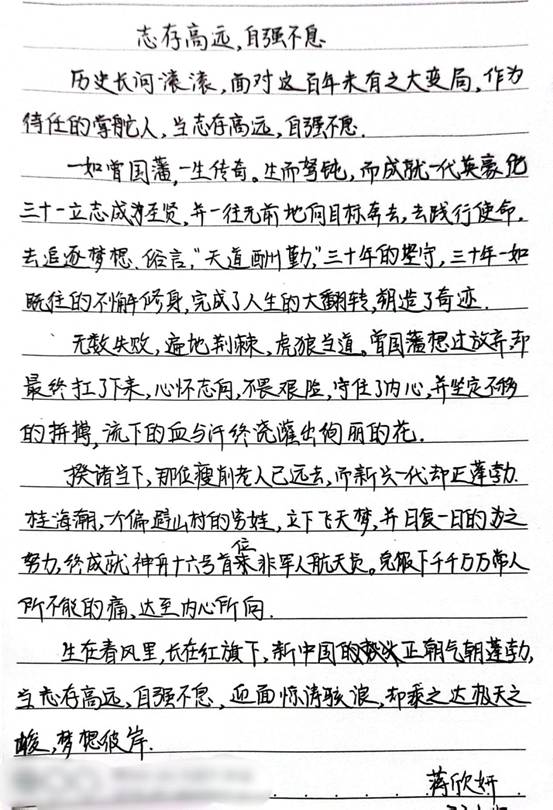 志存高远,自强不息
历史长河滚滚,面对这百年未有之大变局,作为
待任的掌舵人,当志存高远,自强不息.
一如曾国藩,一生传奇。生而驽钝,而成就一代英豪他
三十一立志成为圣贤,并一往无前地向目标奔去,去践行使命.
去追逐梦想.俗言,"天道酬勤,"三十年的坚守,三十年一如
既往的不懈修身,完成了人生的大翻转,朝造了奇迹.
无数失败,遍地荆棘,虎狼当道。曾国藩想过放弃,却
最终扛了下来,心怀志向,不畏艰险,守住了内心,并坚定不移
的拼搏,流下的血与汗终浇灌出绚丽的花.
揆诸当下,那位瘦削老人已远去,而新兴一代却正蓬勃.
桂海潮,一个偏僻山村的男娃,立下飞天梦,并日复一日的为之
努力,终成就神舟十六号首位非军人航天员。克服下千千万万常人
所不能的痛,达至内心所向.
生在春风里,长在红旗下,新中国的正朝气朝蓬勃,
当志存高远,自强不息,迎面惊涛骇浪,却乘之达极天之
峻,梦想彼岸.
蒋欣妍